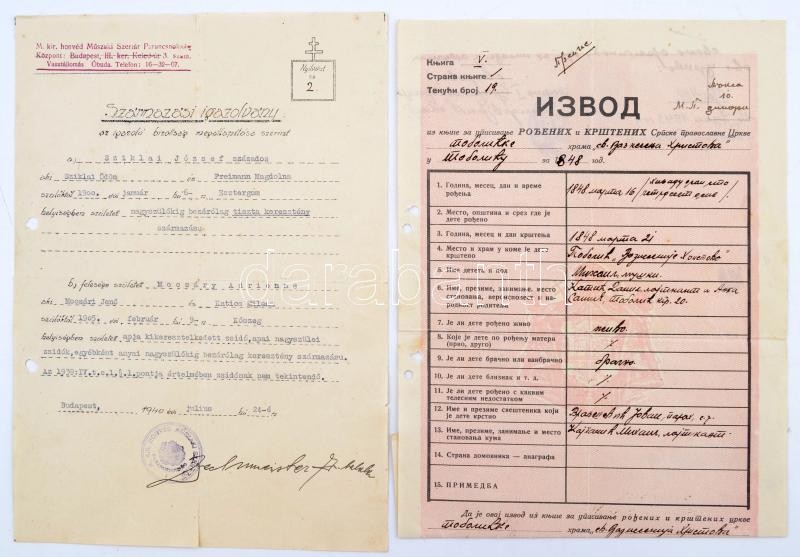 M. kir. honvéd Műszaki Szertár Parancsnokság
Központ: Budapest, III. ker. Keled-út 3. szám
Vasútállomás Óbuda. Telefon: 16-32-07.
Nyilvánt.
sz
2
Származási igazolvány
az igazoló bizottság megállapítása szerint
a, Sziklai József százados
ak: Sziklai Ödön és Freimann Magdolna
született 1900. évi január hó 6-n Esztergom
helyiségben született nagyszülőkig bezárólag tiszta keresztény
származású.
b, felesége született Mocsáry Adrienne
ak: Mocsári Jenő és
született 1905. évi február hó 9-n Kőszeg
helyiségben született apja kikeresztelkedett zsidó, apai nagyszülei
zsidók, egyébként anyai nagyszülőkig bezárólag keresztény származású.
Az 1939:IV.t.c.1.§.1.pontja értelmében zsidónak nem tekintendő.
Budapest, 1940 évi július hó 24-n.
Књига V.
Страна књиге 1
Текући број 19.
Препис
М. П.
ИЗВОД
из књиге за уписивање РОЂЕНИХ и КРШТЕНИХ Српске православне Цркве
храма „св. Вознесења Христова"
у за 1848 год.
1. Година, месец, дан и време рођења
1848 марта 16
2. Место, општина и срез где је дете рођено
3. Година, месец и дан крштења
1848 марта 21
4. Место и храм у коме је дете крштено
5. Име детета и пол
Михаил, мушки.
6. Име, презиме, занимање, место становања, вероисповест и народност родитеља
7. Је ли дете рођено живо
живо.
8. Које је дете по рођењу матери (прво, друго)
9. Је ли дете брачно или ванбрачно
брачно.
10. Је ли дете близнак и т. д.
11. Је ли дете рођено с каквим телесним недостатком
12. Име и презиме свештеника који је дете крстио
13. Име и презиме, занимање и место становања кума
14. Страна домовника — анаграфа
15. ПРИМЕДБА
Да је овај извод из књиге за уписивање рођених и крштених цркве
храма „св. Вознесења Христова"
darabanth